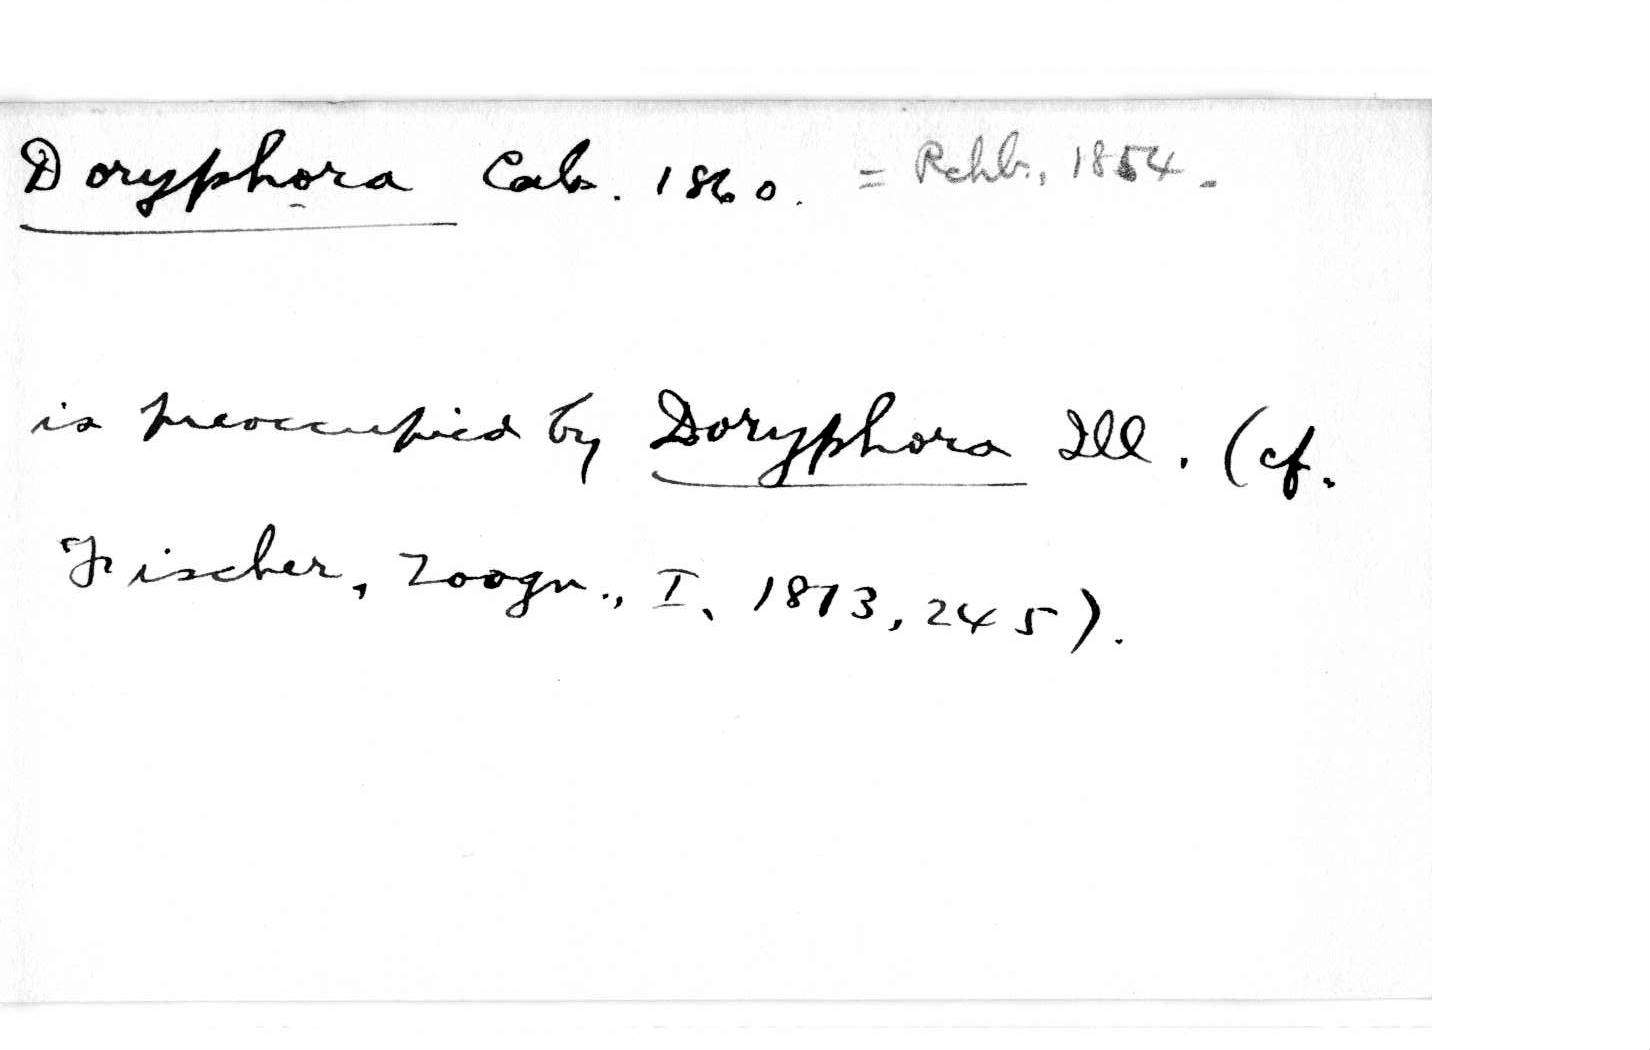 Doryphora Cab. 1860. = Rchb., 1854.
is preoccupied by Doryphora Ill. (cf.
Fischer, Zoogn., I, 1813, 245).